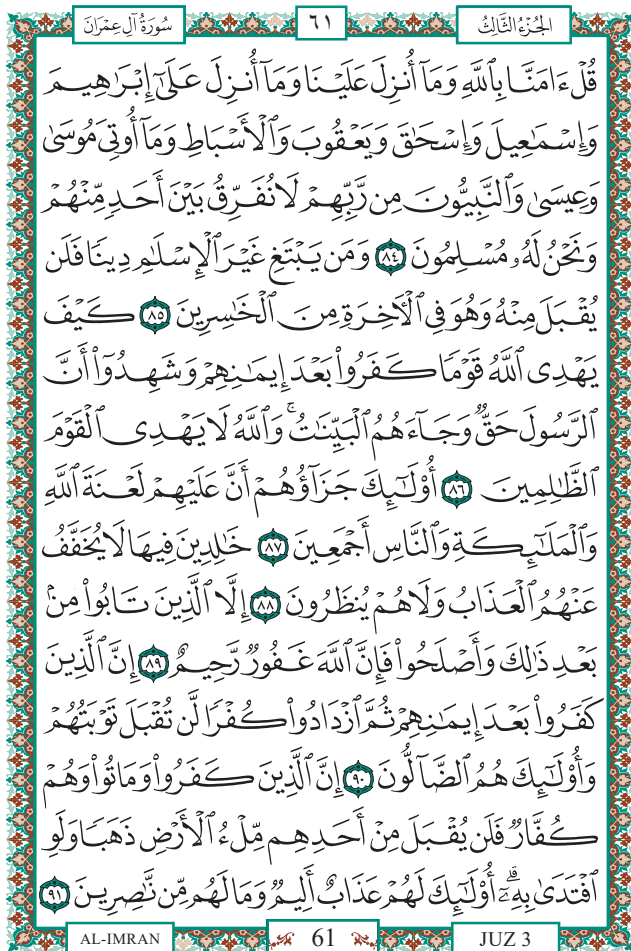 سُورَةُ آلِ عِمْرَانَ
٦١
الجُزْءُ الثَّالِثُ
قُلْ ءَامَنَّا بِٱللَّهِ وَمَآ أُنزِلَ عَلَيْنَا وَمَآ أُنزِلَ عَلَىٰٓ إِبْرَٰهِيمَ
وَإِسْمَٰعِيلَ وَإِسْحَٰقَ وَيَعْقُوبَ وَٱلْأَسْبَاطِ وَمَآ أُوتِىَ مُوسَىٰ
وَعِيسَىٰ وَٱلنَّبِيُّونَ مِن رَّبِّهِمْ لَا نُفَرِّقُ بَيْنَ أَحَدٍ مِّنْهُمْ
وَنَحْنُ لَهُۥ مُسْلِمُونَ ٨٤ وَمَن يَبْتَغِ غَيْرَ ٱلْإِسْلَٰمِ دِينًا فَلَن
يُقْبَلَ مِنْهُ وَهُوَ فِى ٱلْءَاخِرَةِ مِنَ ٱلْخَٰسِرِينَ ٨٥ كَيْفَ
يَهْدِى ٱللَّهُ قَوْمًا كَفَرُوا۟ بَعْدَ إِيمَٰنِهِمْ وَشَهِدُوٓا۟ أَنَّ
ٱلرَّسُولَ حَقٌّ وَجَآءَهُمُ ٱلْبَيِّنَٰتُ ۚ وَٱللَّهُ لَا يَهْدِى ٱلْقَوْمَ
ٱلظَّٰلِمِينَ ٨٦ أُو۟لَٰٓئِكَ جَزَآؤُهُمْ أَنَّ عَلَيْهِمْ لَعْنَةَ ٱللَّهِ
وَٱلْمَلَٰٓئِكَةِ وَٱلنَّاسِ أَجْمَعِينَ ٨٧ خَٰلِدِينَ فِيهَا لَا يُخَفَّفُ
عَنْهُمُ ٱلْعَذَابُ وَلَا هُمْ يُنظَرُونَ ٨٨ إِلَّا ٱلَّذِينَ تَابُوا۟ مِنۢ
بَعْدِ ذَٰلِكَ وَأَصْلَحُوا۟ فَإِنَّ ٱللَّهَ غَفُورٌ رَّحِيمٌ ٨٩ إِنَّ ٱلَّذِينَ
كَفَرُوا۟ بَعْدَ إِيمَٰنِهِمْ ثُمَّ ٱزْدَادُوا۟ كُفْرًا لَّن تُقْبَلَ تَوْبَتُهُمْ
وَأُو۟لَٰٓئِكَ هُمُ ٱلضَّآلُّونَ ٩٠ إِنَّ ٱلَّذِينَ كَفَرُوا۟ وَمَاتُوا۟ وَهُمْ
كُفَّارٌ فَلَن يُقْبَلَ مِنْ أَحَدِهِم مِّلْءُ ٱلْأَرْضِ ذَهَبًا وَلَوِ
ٱفْتَدَىٰ بِهِۦٓ ۗ أُو۟لَٰٓئِكَ لَهُمْ عَذَابٌ أَلِيمٌ وَمَا لَهُم مِّن نَّٰصِرِينَ ٩١
AL-IMRAN
61
JUZ 3